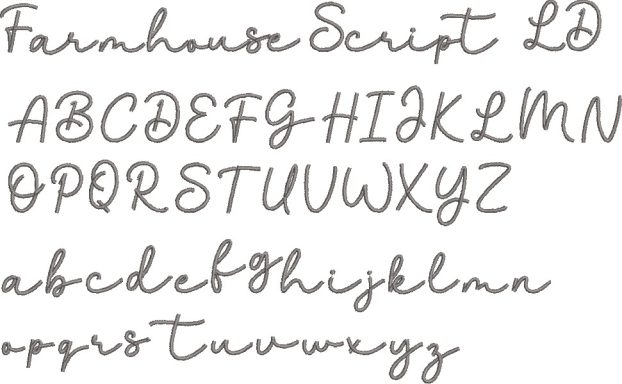 Farmhouse Script LD
ABCDEFGHIJKLMN
OPQRSTUVWXYZ
abcdefghijklmn
opqrstuvwxyz